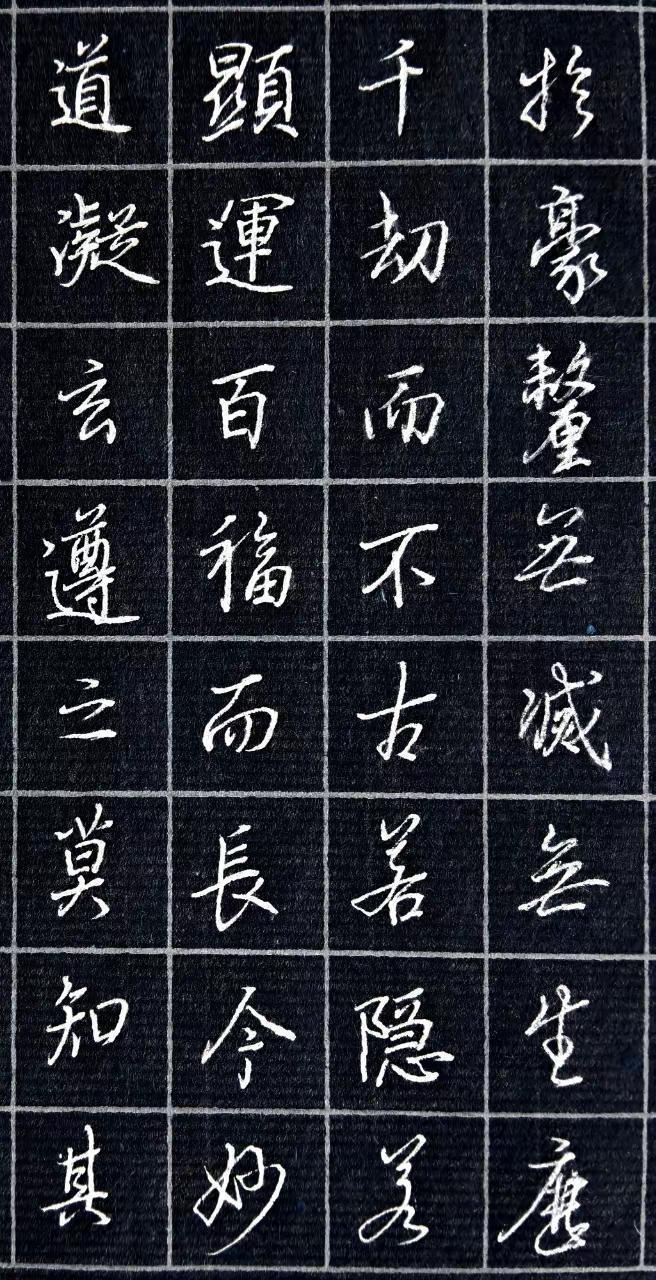 於豪釐無滅無生歷
千劫而不古若隐若
顯運百福而長今妙
道凝玄遵之莫知其